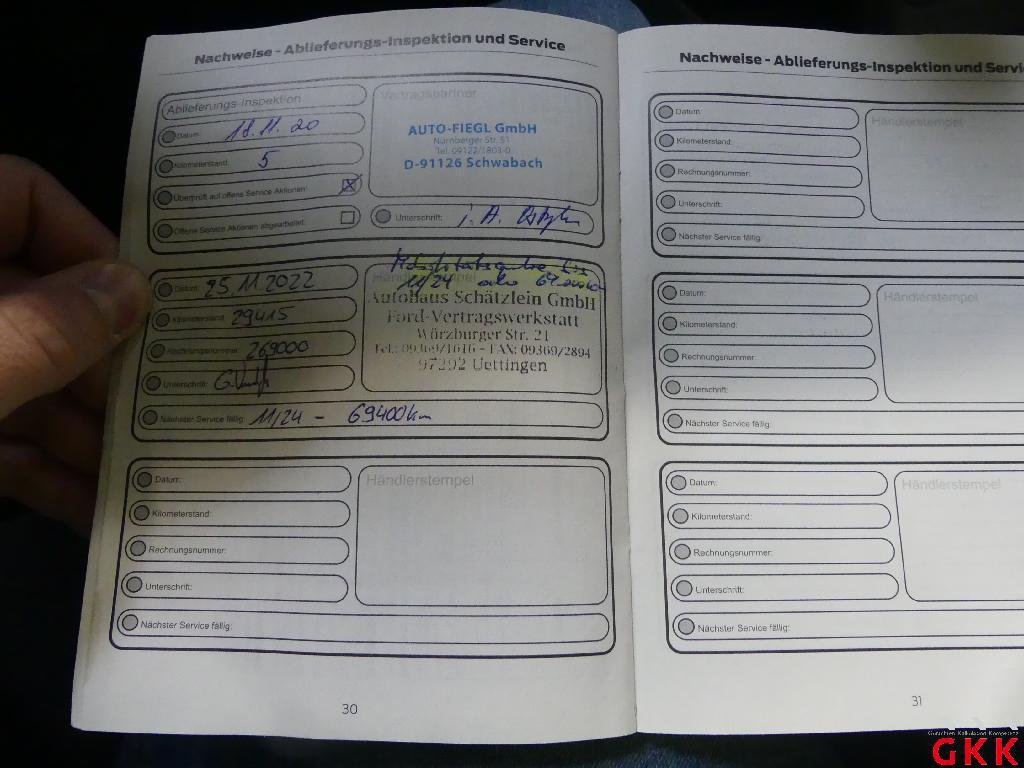 Nachweise - Ablieferungs-Inspektion und Service
Ablieferungs-Inspektion
Datum: 18.11.20
Kilometerstand: 5
Überprüft auf offene Service Aktionen:
Offene Service Aktionen abgearbeitet:
Vertragspartner
AUTO-FIEGL GmbH
Nürnberger Str. 51
Tel. 09122/1803-0
D-91126 Schwabach
Unterschrift: i. A.
Datum: 25.11.2022
Kilometerstand: 29415
Rechnungsnummer: 269000
Unterschrift:
Nächster Service fällig: 11/24 - 69400km
Mobilitätsgarantie bis
11/24 oder
Autohaus Schätzlein GmbH
Ford-Vertragswerkstatt
Würzburger Str. 21
Tel.: 09369/1616 - FAX: 09369/2894
97292 Uettingen
Datum:
Kilometerstand:
Rechnungsnummer:
Unterschrift:
Nächster Service fällig:
Händlerstempel
30
Nachweise - Ablieferungs-Inspektion und Servi
Datum:
Kilometerstand:
Rechnungsnummer:
Unterschrift:
Nächster Service fällig:
Händlerstempel
Datum:
Kilometerstand:
Rechnungsnummer:
Unterschrift:
Nächster Service fällig:
Händlerstempel
Datum:
Kilometerstand:
Rechnungsnummer:
Unterschrift:
Nächster Service fällig:
Händlerstempel
31
Gutachten Kalkulation Kompetenz
GKK